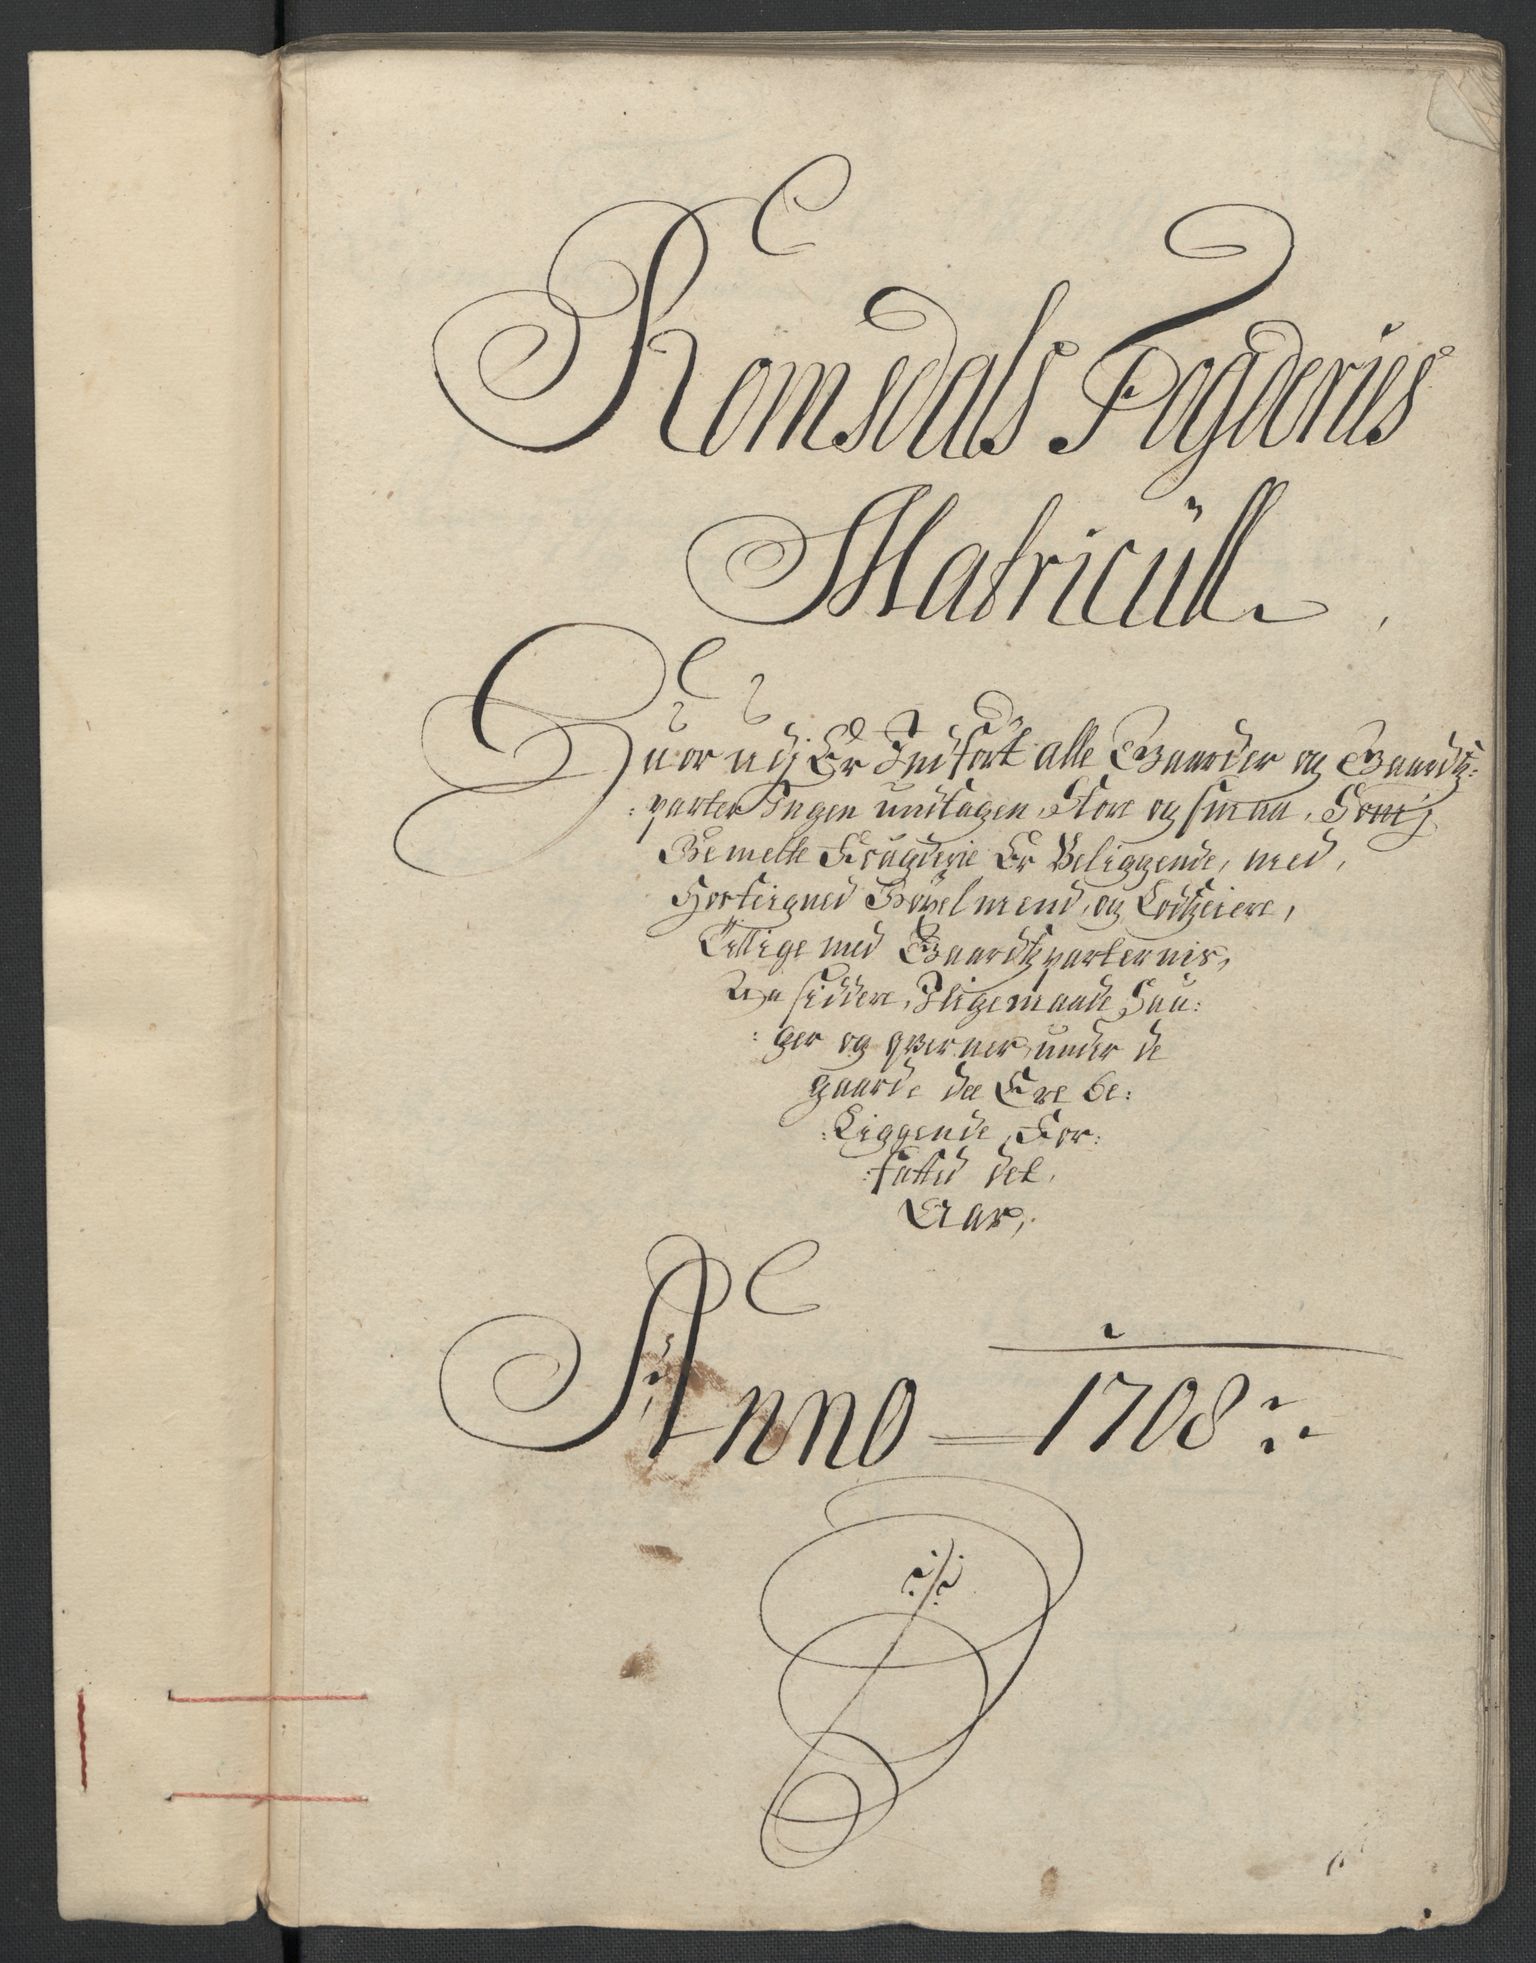 Romsdals Fogderies
Matricüll
Huor udj Er Indført alle Gaarder og Gaardtz:
:parter Ingen undtagen, Store og smaa, Som j
Bemelte Fougderie Er Beliggende, med,
Hosteigned Bøxelmend, og Lodtzeiere,
Tillige med Gaardtzparternis,
Paasiddere, Iligemaade Sau:
:ger og qverner, under de
gaarde de Ere be:
:Liggende, For:
:fatted det,
Aar,
Anno 1708